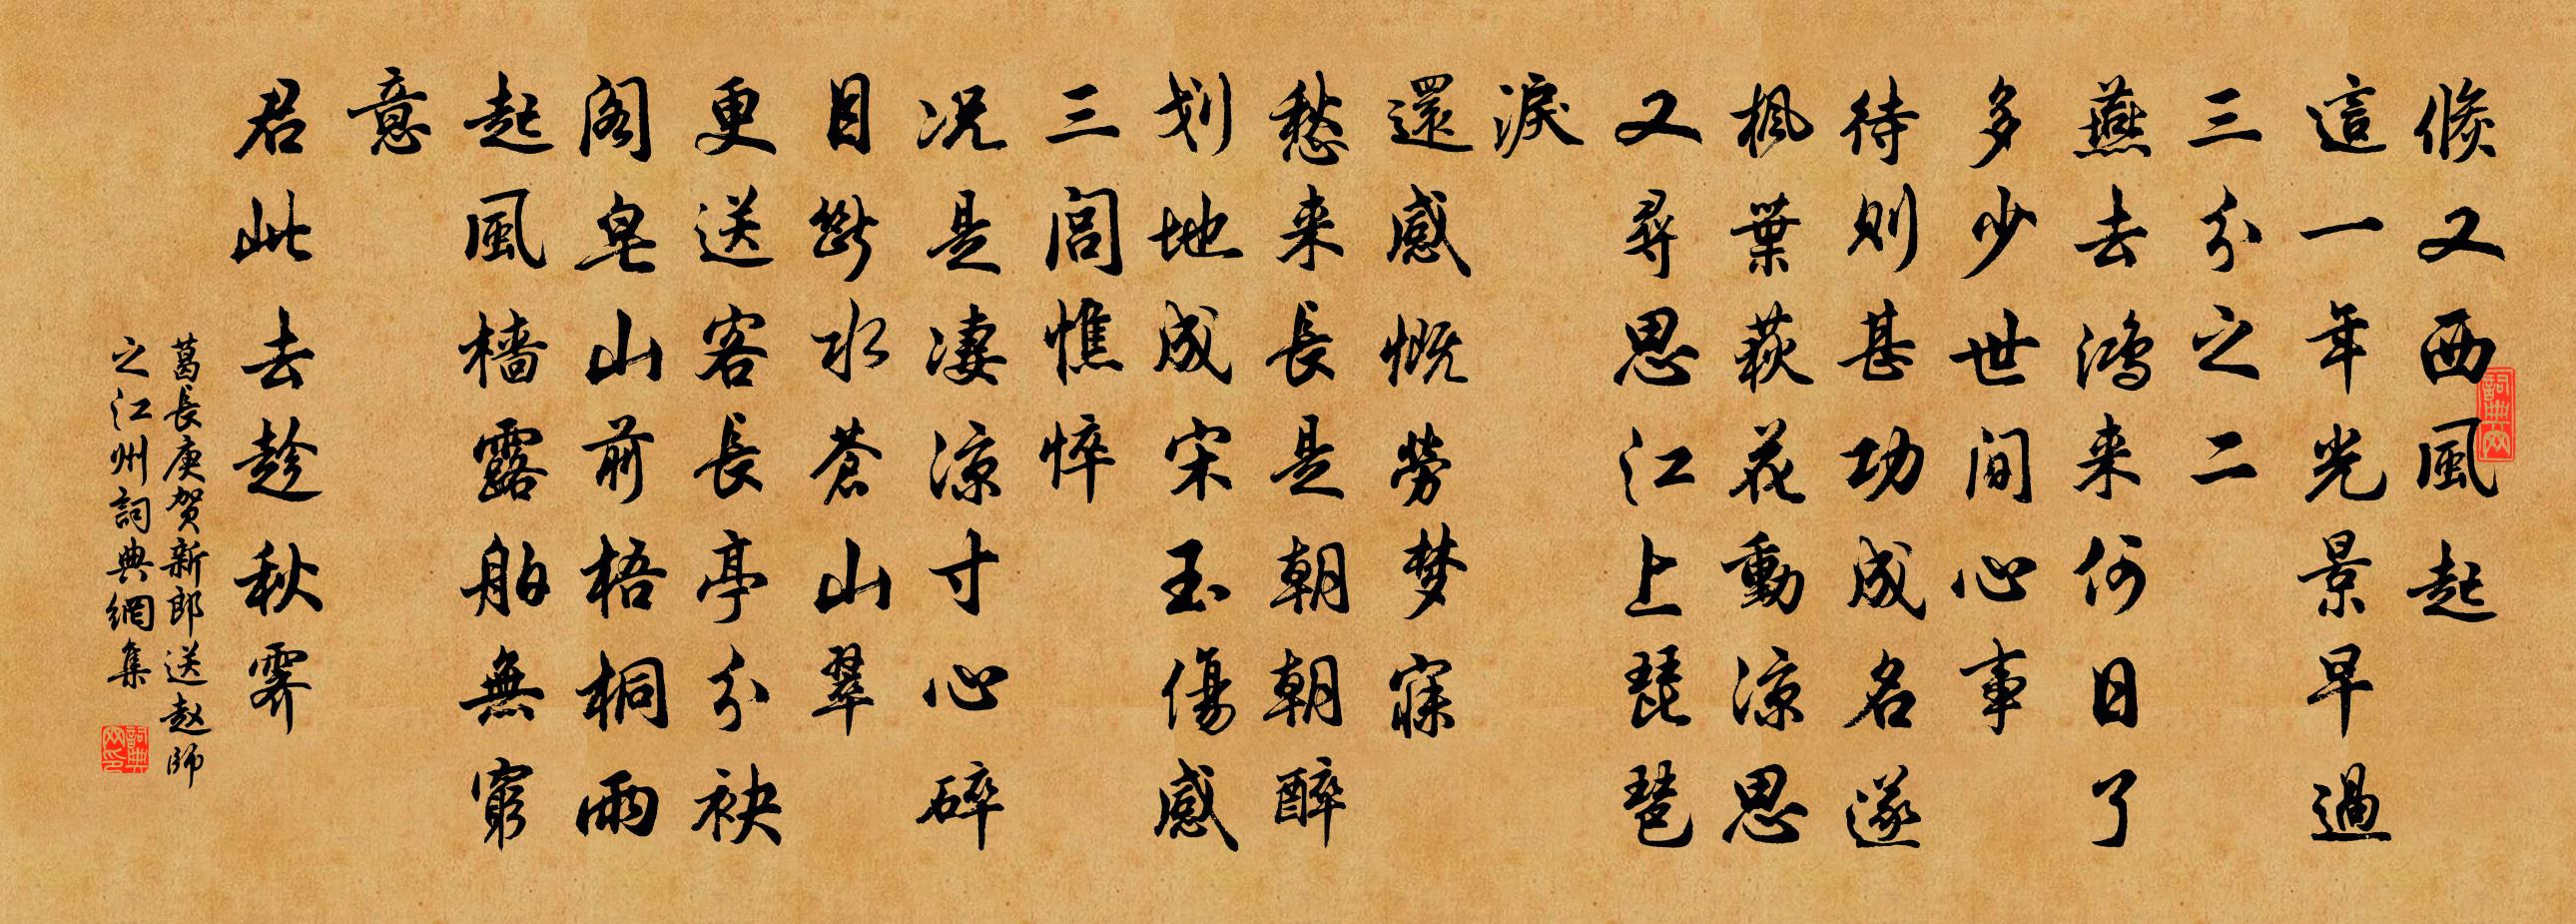 倐又西風起
這一年光景早過
三分之二
燕去鴻来何日了
多少世间心事
待则甚功成名遂
枫葉荻花動凉思
又尋思江上琵琶
淚
還感慨勞梦寐
愁来長是朝朝醉
划地成宋玉傷感
三闾憔悴
况是凄凉寸心碎
目断水蒼山翠
更送客長亭分袂
阁皂山前梧桐雨
起風樯露舶無窮
意
君此去趁秋霁
葛長庚贺新郎送赵師
之江州詞典網集
詞典网
詞典网印